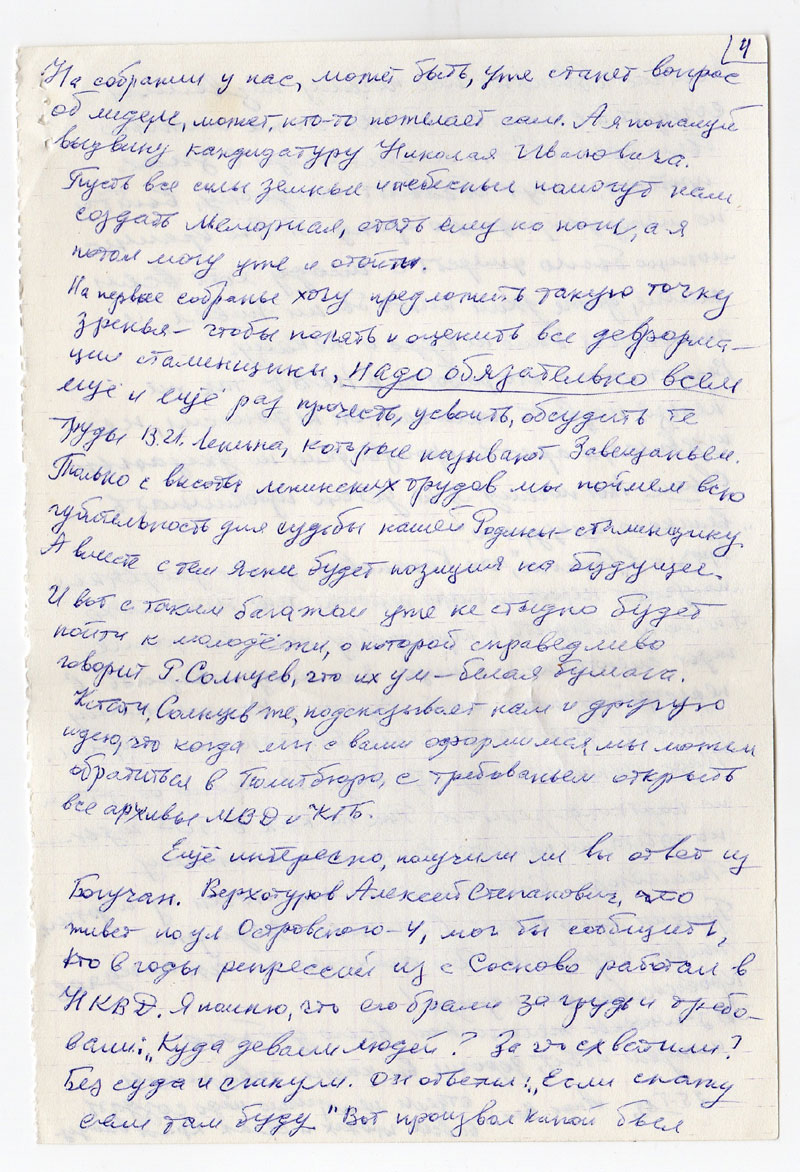 4
На собрании у нас, может быть, уже станет вопрос
об лидере, может, кто-то пожелает сам. А я пожалуй
выдвину кандидатуру Николая Ивановича.
Пусть все силы земные и небесные помогут нам
создать Мемориал, стать ему на ноги, а я
потом могу уже и отойти.
На первое собранье хочу предложить такую точку
зренья – чтобы понять и оценить все деформа-
ции сталинщины, надо обязательно всем
ещё и ещё раз прочесть, усвоить, обсудить те
труды В.И. Ленина, которые называют Завещаньем.
Только с высоты ленинских трудов мы поймем всю
губительность для судьбы нашей Родины – сталинщину.
А вместе с тем яснее будет позиция на будущее.
И вот с таким багажом уже не стыдно будет
пойти к молодёжи, о которой справедливо
говорит Р. Солнцев, что их ум – белая бумага.
Кстати, Солнцев же, подсказывает нам и другую
идею, что когда мы с вами оформимся, мы можем
обратиться в Политбюро, с требованьем открыть
все архивы МВД и КГБ.
Ещё интересно, получили ли вы ответ из
Богучан. Верхотуров Алексей Степанович, что
живет по ул Островского-4, мог бы сообщить,
кто в годы репрессий из с Сосново работал в
НКВД. Я помню, что его брали за грудь и требо-
вали: „Куда девали людей? За что схватили?
Без суда и сгинули. Он ответил: „Если скажу
сам там буду" Вот произвол какой был